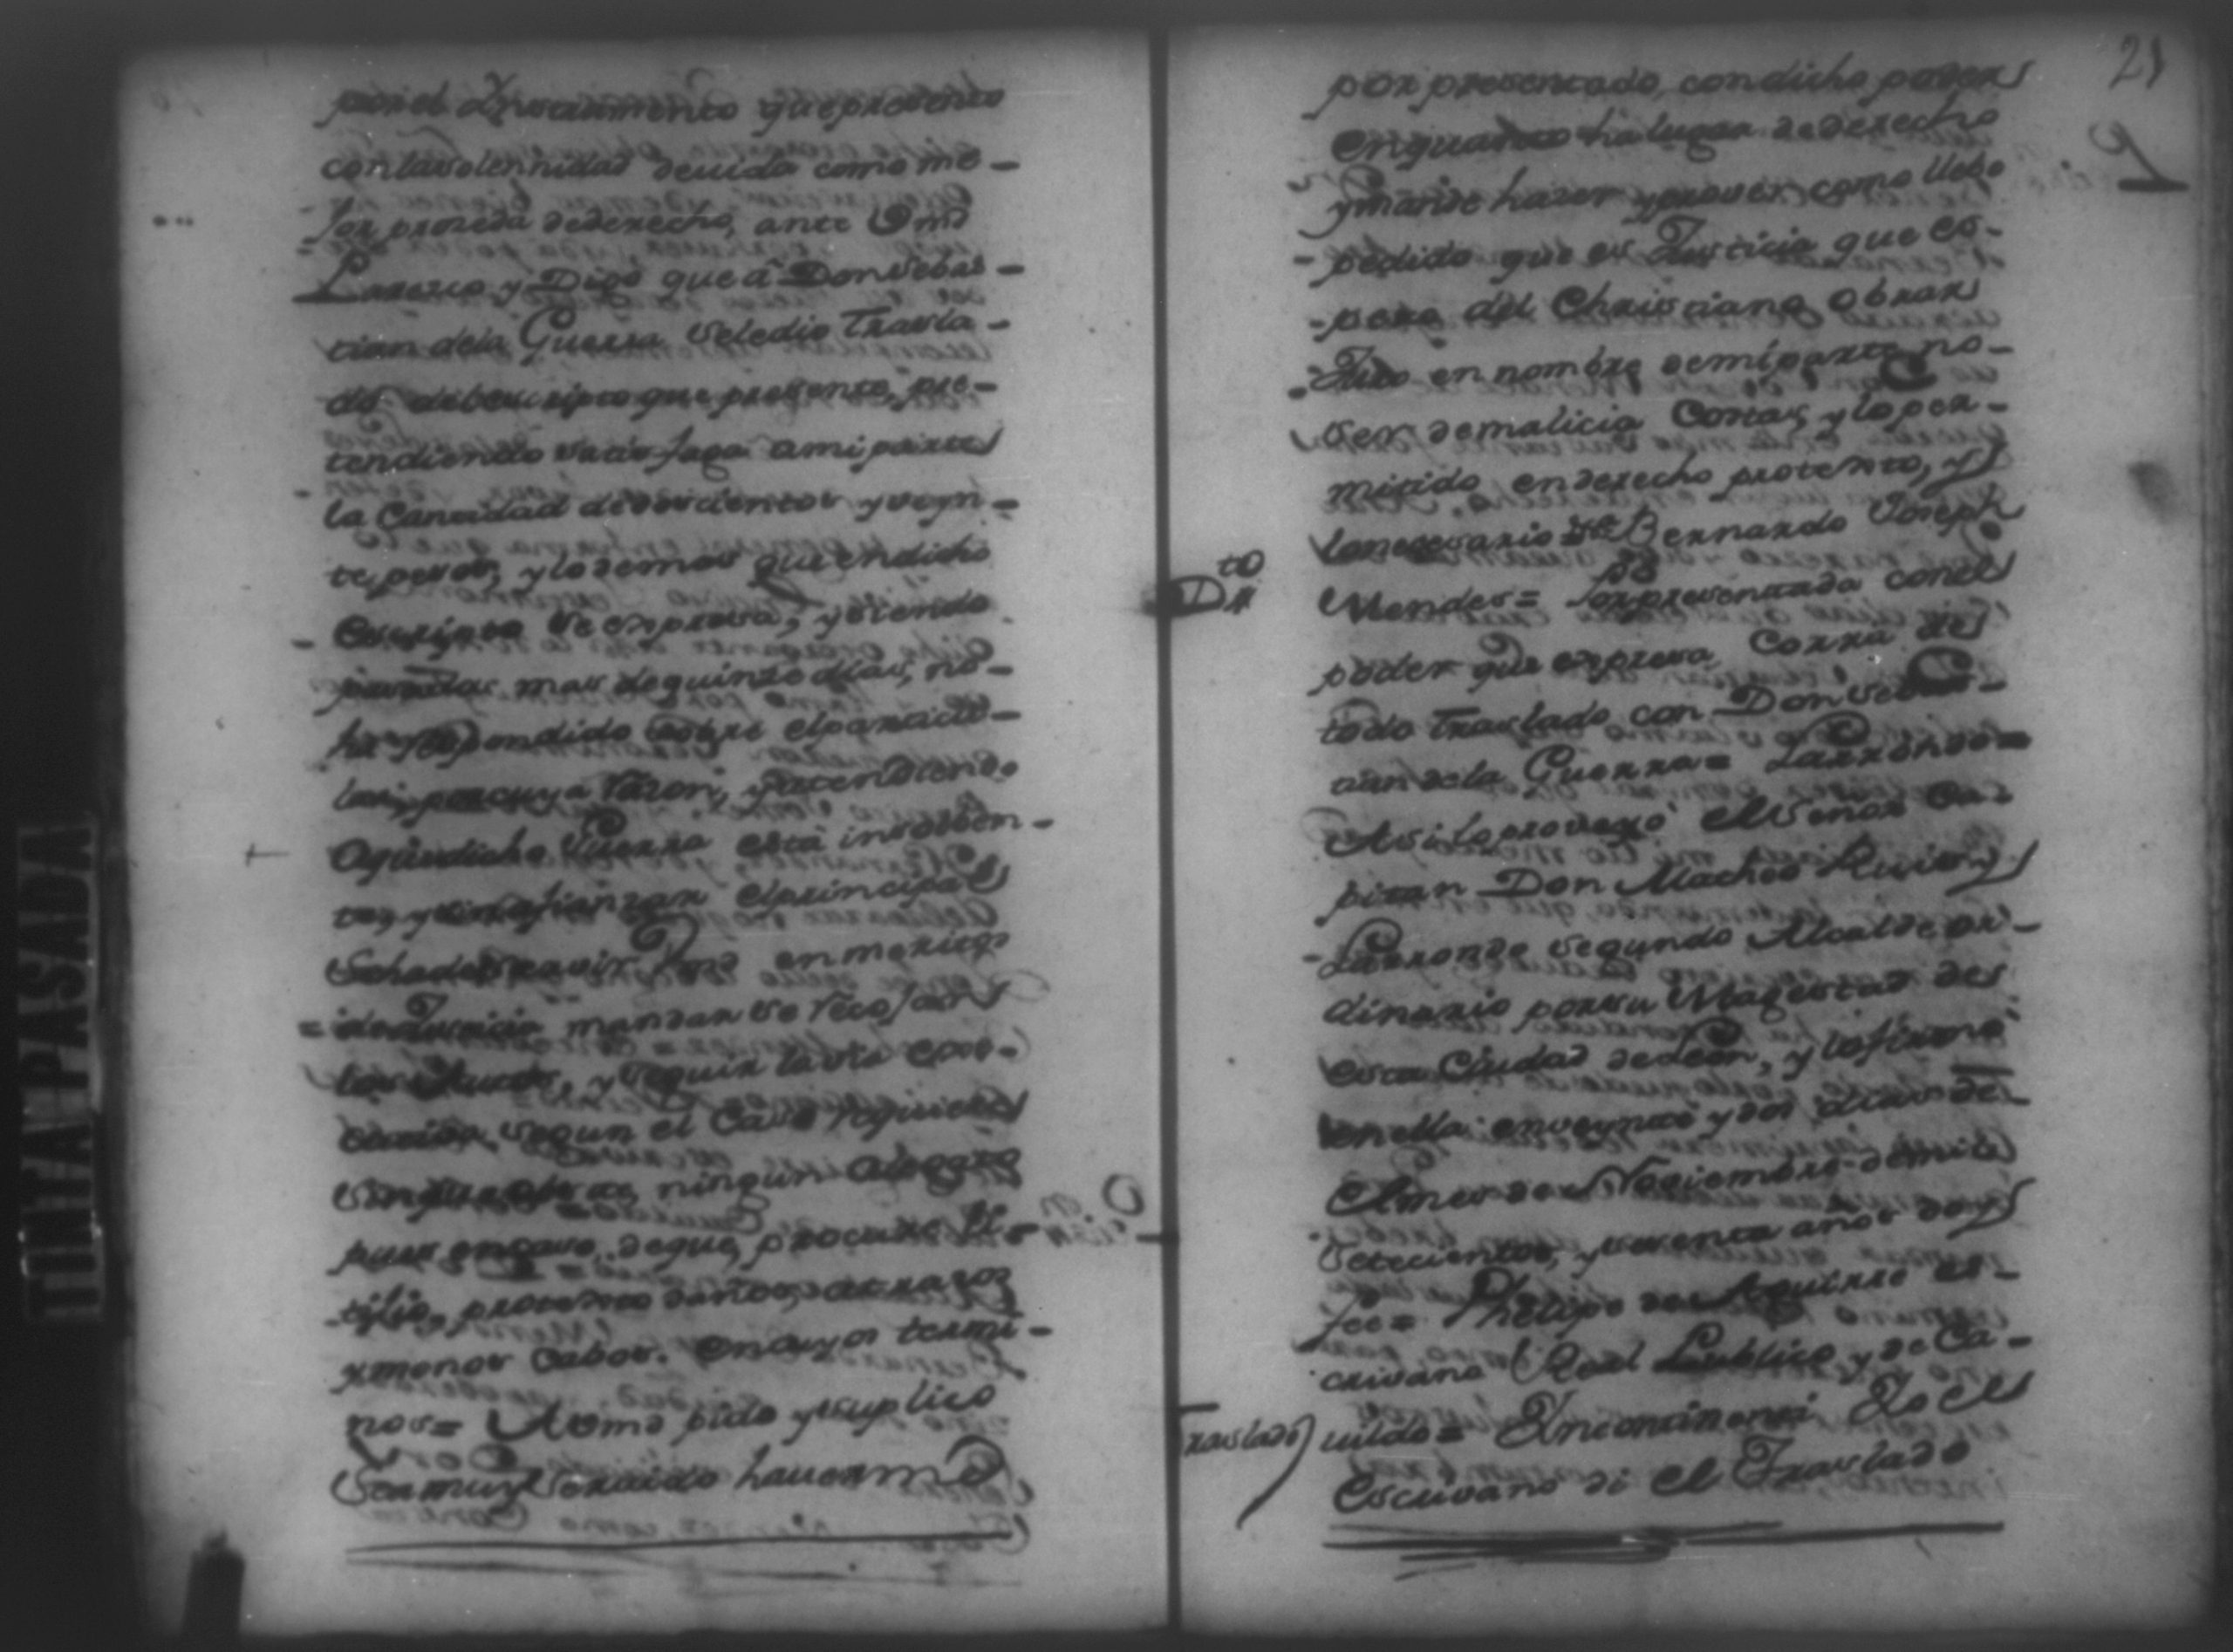 por el Ynstrumento que presento
con la solennidad devida como me-
jor proceda de derecho, ante Vmd
Paresco y Digo que â Don Sebas-
tian de la Guerra se le dio Trasla-
do del escripto que presente, pre-
tendiendo satisfaga a mi parte
la Cantidad de doscientos y veyn-
te pesos, y lo demas que en dicho
Escripto se expresa, y siendo
pasados mas de quinze dias, no
ha respondido sobre el particu-
lar, por cuya razon, y atendiendo
a que dicho Guerra està insolben-
te, y sin afianzar el principal
Se ha de servir Vmd en meritos
de Justicia mandar se recojan
los Autos, y seguir la via
segun el Caso requiere
sin que obste, ningun alegato
pues en caso de que, procure el
protexto daños, atrazos
y menos Cabos. En cuyos termi-
nos= A Vmd pido y suplico
Sea muy Servido haverme
21
por presentado, con dicho poder
en quanto ha lugar de derecho
y mande hazer y prover como llebo
pedido que es Justicia que es-
pero del Christiano Obrar
Juro en nombre de mi parte no
ser de malicia Costas, y lo per-
mitido en derecho protexto, y
lo nesesario &c Bernardo Joseph
Mendes= Por presentada con el
Dto
poder que expresa, Corra de
todo Traslado con Don Sebas-
tian de la Guerra= Larrondo=
Asi lo proveyó el Señor Ca-
pitan Don Matheo Ruis y
Larronde segundo Alcalde or-
dinario por su Magestad de
esta Ciudad de Leon, y lo firmó
en ella en veynte y dos dias de
el mes de Noviembre de mil
Setecientos, y sesenta años doy
fee= Phelipe de Aguirre es-
crivano Real Publico y de Ca-
Traslado
vildo= Yncontinenti Yo el
Escrivano di el Traslado
TINTA PASADA